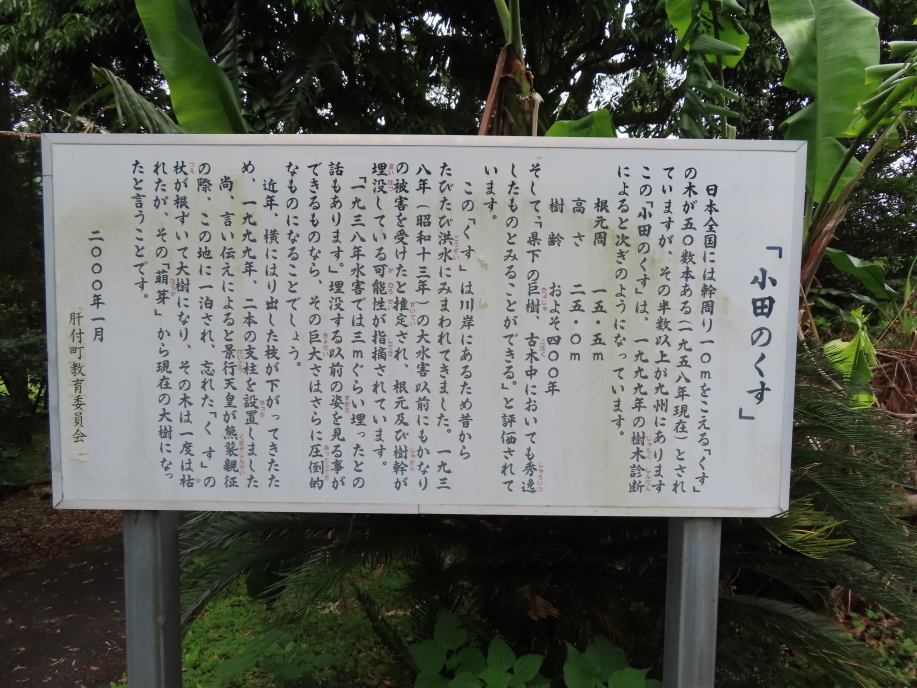 「小田のくす」
日本全国には幹周り一〇mをこえる「くす」
の木が五〇数本ある(一九五八年現在)とされ
ていますが、その半数以上が九州にあります
この「小田のくすは、一九九九年の樹木診断
によると次ぎのようになっています。
根元周 一五・五m
高さ 二五・〇m
樹齢 およそ四〇〇年
そして「県下の巨樹、古木中においても秀逸
したものとみることができる。」と評価されて
います。
この「くす」は川岸にあるため昔から
たびたび洪水にみまわれていました。一九三
八年(昭和十三年)の大水害以前にもかなり
の被害を受けたと推定され、根元及び樹幹が
埋没している可能性が指摘されています。
「一九三八年水害では三mぐらい埋ったとの
話もあります。」埋没する以前の姿を見る事が
できるものなら、その巨大さはさらに圧倒的
なものになることでしょう。
近年、横にはり出した枝が下がってきたた
め、一九九九年、二本の支柱を設置しました
尚、言い伝えによると景行天皇が熊襲親征
の際、この地に一泊され、忘れた「くす」の
杖が根ずいて大樹になり、その木は一度は枯
れたが、その「萌芽」から現在の大樹になっ
たと言うことです。
二〇〇〇年一月
肝付町教育委員会